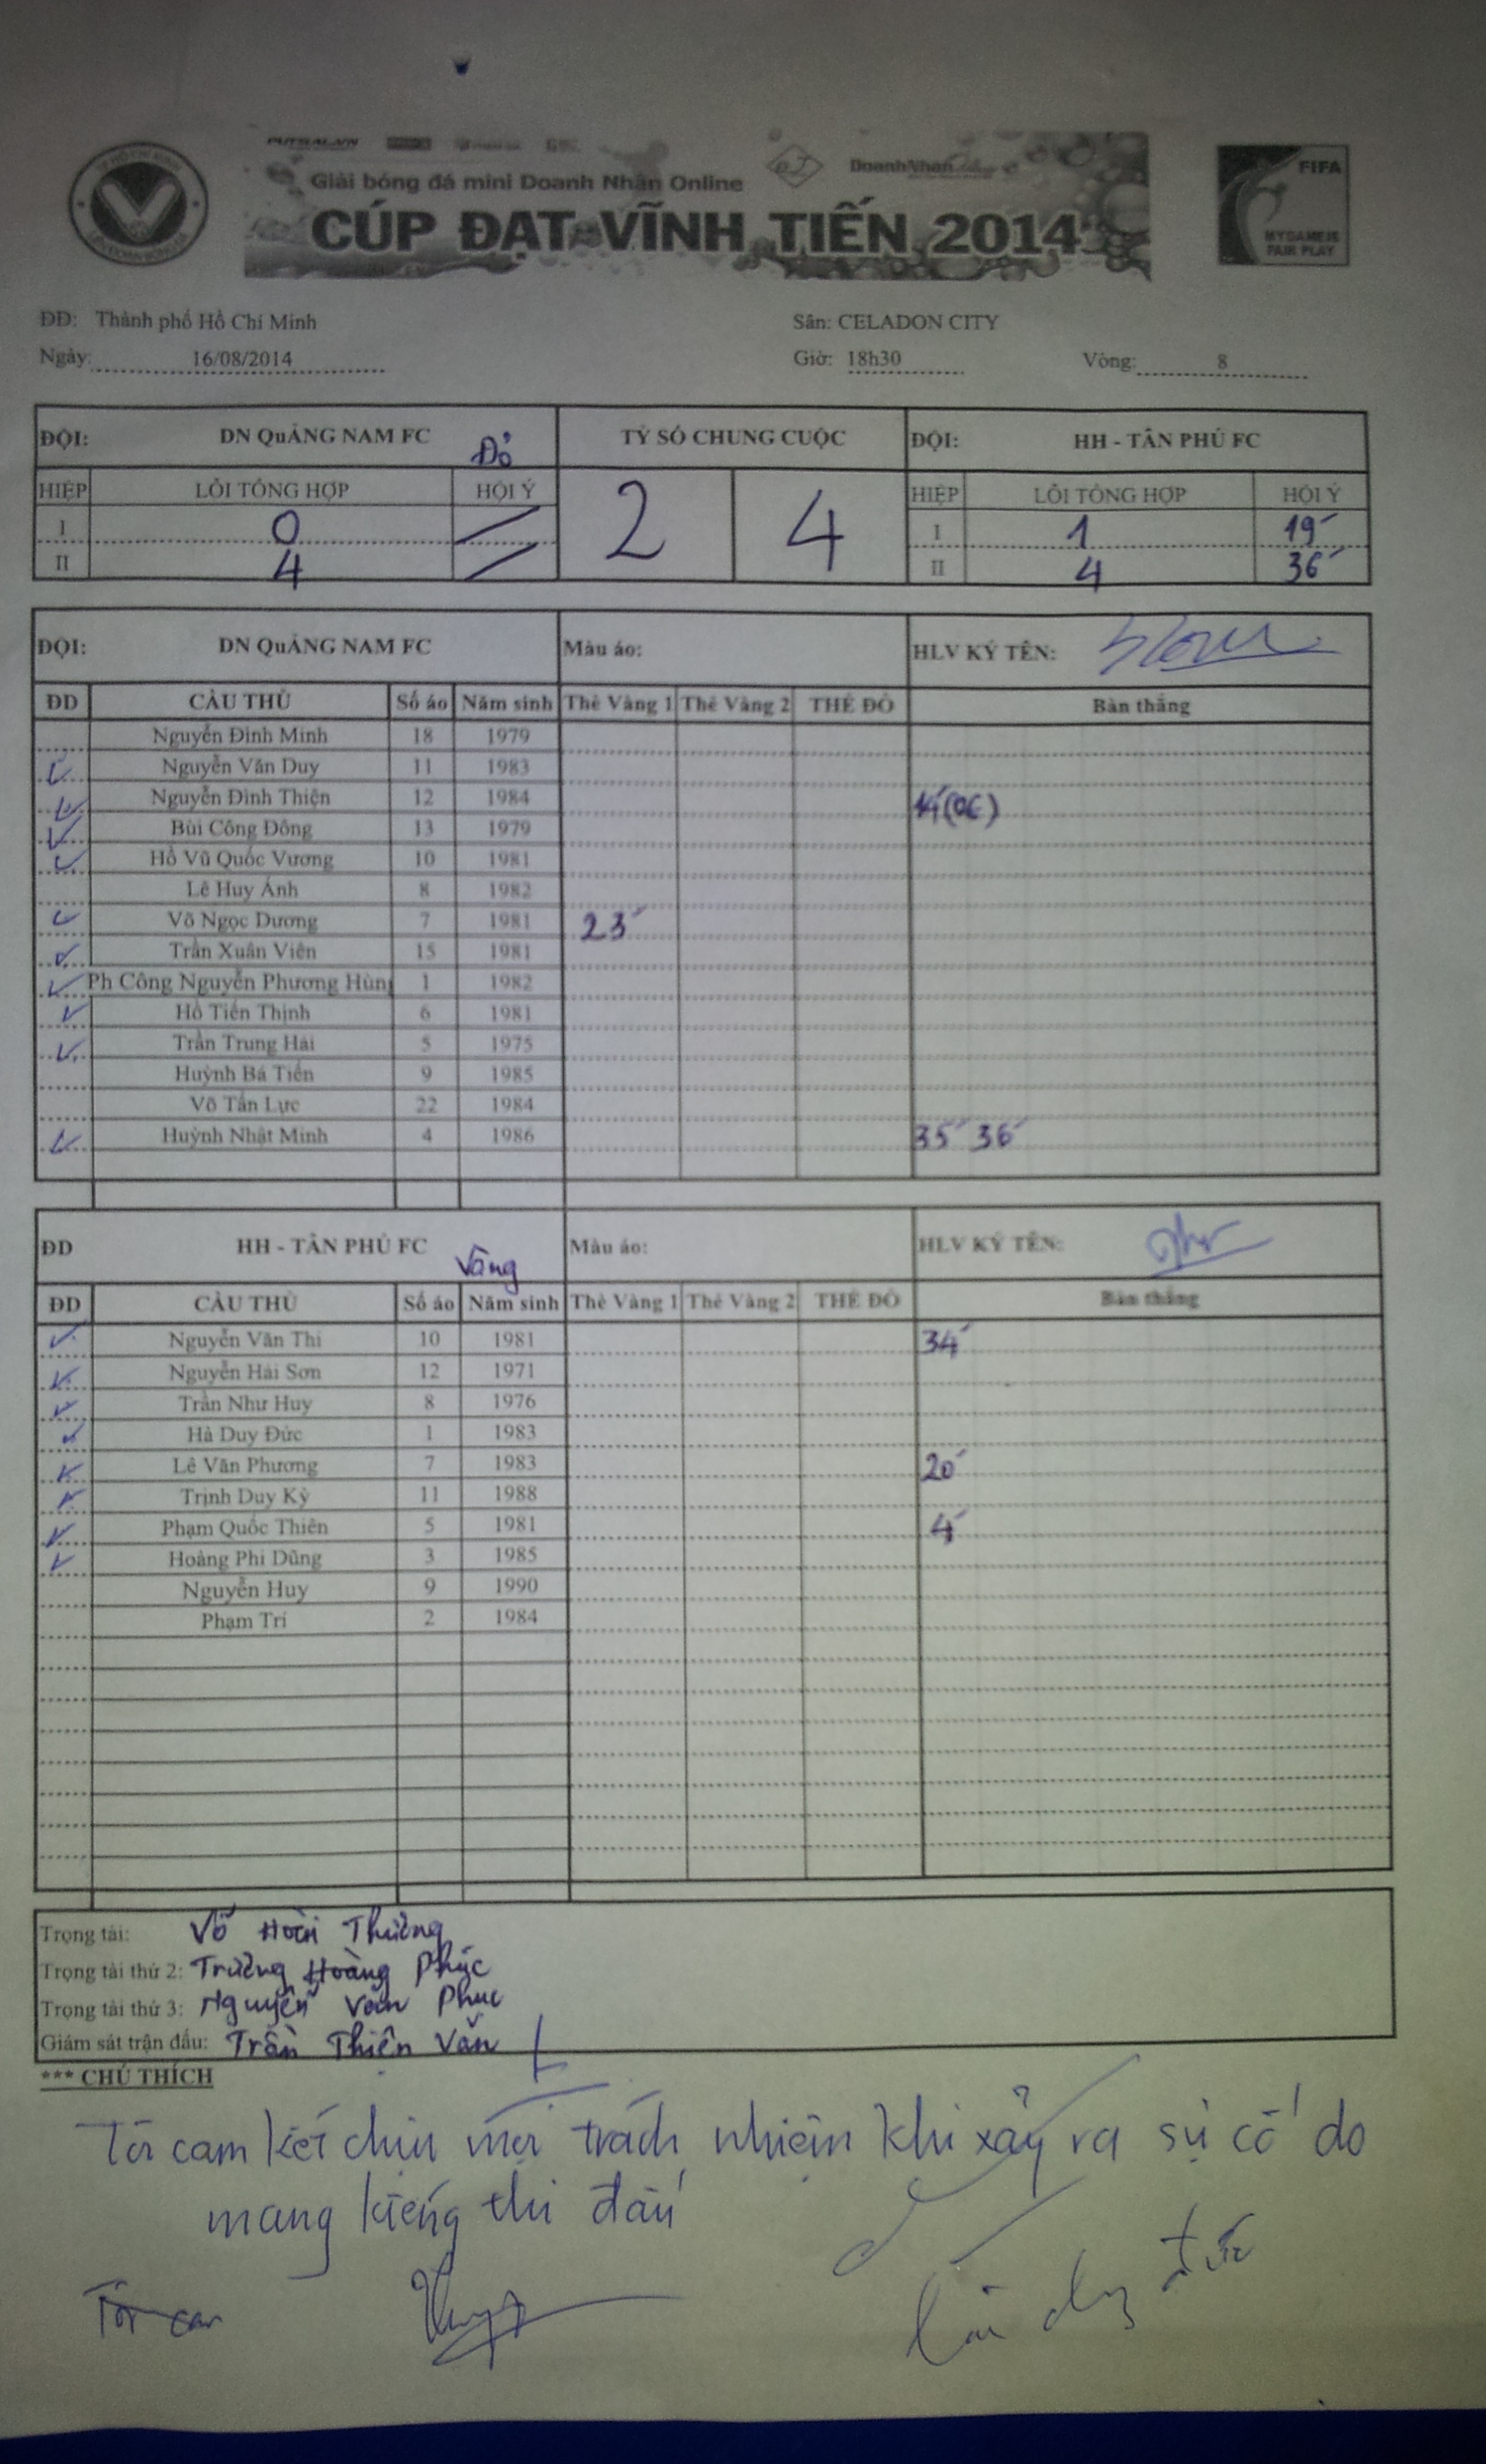 Giải bóng đá mini Doanh Nhân Online
DoanhNhan
CÚP ĐẠT VĨNH TIẾN 2014
FIFA
MY GAME IS
FAIR PLAY
ĐĐ: Thành phố Hồ Chí Minh
Sân: CELADON CITY
Ngày: 16/08/2014
Giờ: 18h30
Vòng: 8
ĐỘI: DN QuẢNG NAM FC Đỏ
TỶ SỐ CHUNG CUỘC
ĐỘI: HH - TÂN PHÚ FC
HIỆP LỖI TỔNG HỢP HỘI Ý
2 4
HIỆP LỖI TỔNG HỢP HỘI Ý
I 0
I 1 19'
II 4
II 4 36'
ĐỘI: DN QuẢNG NAM FC Màu áo: HLV KÝ TÊN:
ĐD CẦU THỦ Số áo Năm sinh Thẻ Vàng 1 Thẻ Vàng 2 THẺ ĐỎ Bàn thắng
Nguyễn Đình Minh 18 1979
Nguyễn Văn Duy 11 1983
Nguyễn Đình Thiện 12 1984
Bùi Công Đông 13 1979
Hồ Vũ Quốc Vương 10 1981
Lê Huy Ánh 8 1982
Võ Ngọc Dương 7 1981 23'
Trần Xuân Viên 15 1981
Ph Công Nguyễn Phương Hùng 1 1982
Hồ Tiến Thịnh 6 1981
Trần Trung Hải 5 1975
Huỳnh Bá Tiến 9 1985
Võ Tấn Lực 22 1984
Huỳnh Nhật Minh 4 1986 35' 36'
ĐD HH - TÂN PHÚ FC Vàng Màu áo: HLV KÝ TÊN:
ĐD CẦU THỦ Số áo Năm sinh Thẻ Vàng 1 Thẻ Vàng 2 THẺ ĐỎ Bàn thắng
Nguyễn Văn Thi 10 1981 34'
Nguyễn Hải Sơn 12 1971
Trần Như Huy 8 1976
Hà Duy Đức 1 1983
Lê Văn Phương 7 1983 20'
Trịnh Duy Kỳ 11 1988
Phạm Quốc Thiên 5 1981 4'
Hoàng Phi Dũng 3 1985
Nguyễn Huy 9 1990
Phạm Trí 2 1984
Trọng tài: Võ Hoài Thương
Trọng tài thứ 2: Trương Hoàng Phúc
Trọng tài thứ 3: Nguyễn Văn Phuc
Giám sát trận đấu: Trần Thiên Văn
*** CHÚ THÍCH
Tôi cam kết chịu mọi trách nhiệm khi xảy ra sự cố do
mang kiếng thi đấu